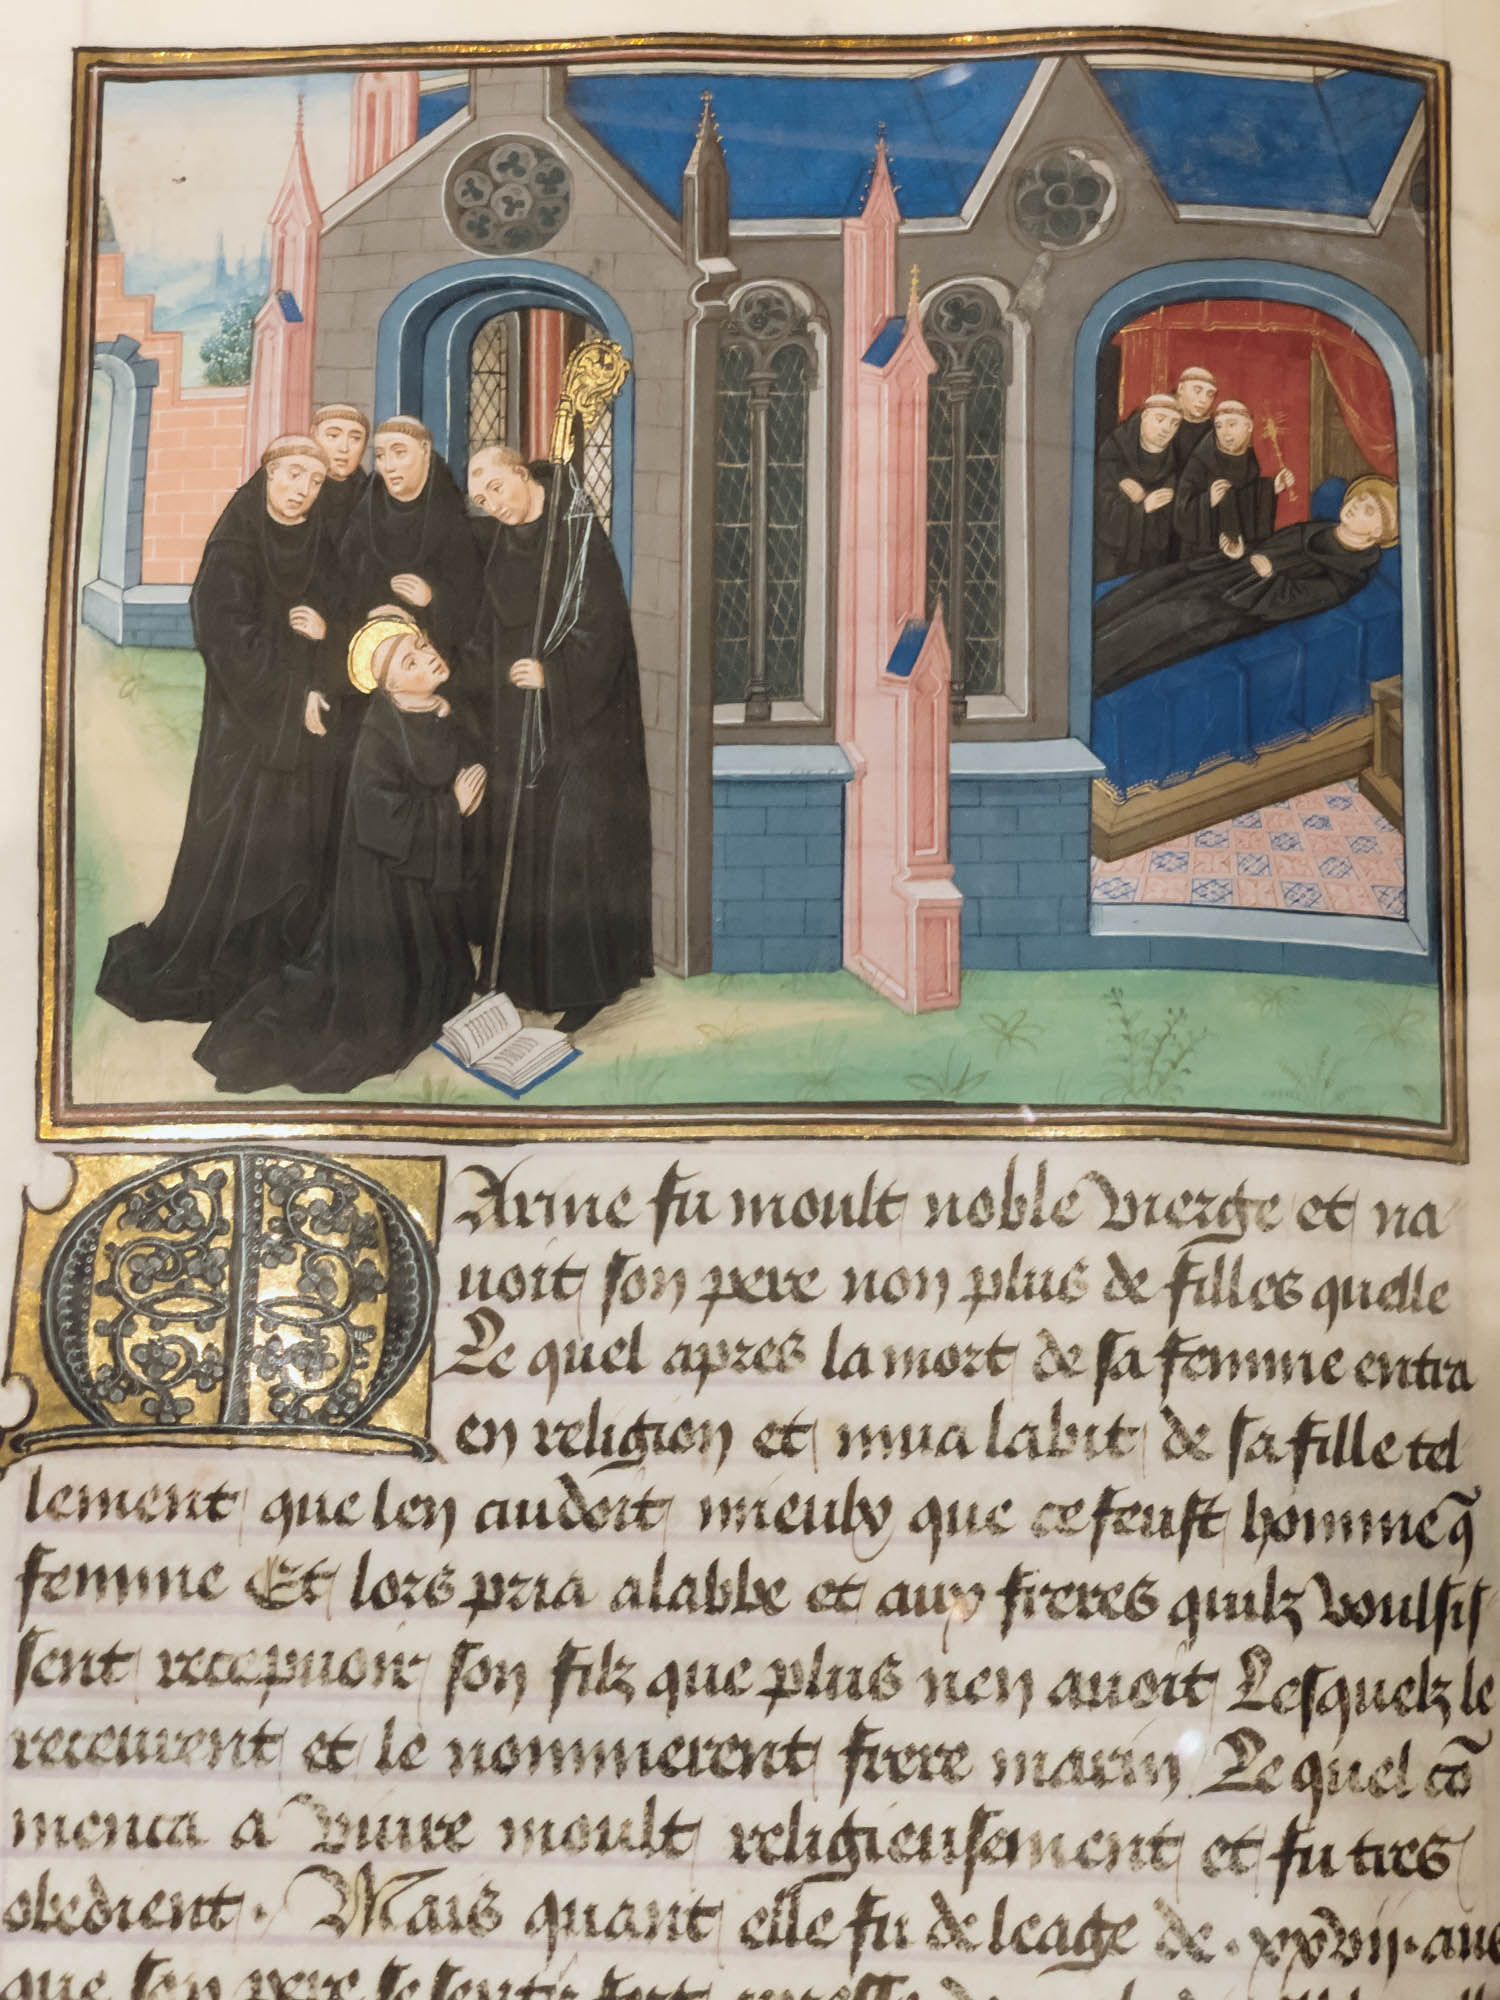 Marine fu moult noble vierge et na
uoit son pere non plus de filles quelle
Le quel apres la mort de sa femme entra
en religion et mua labit de sa fille tel
lement que len cuidoit mieulx que ce feust homme q̃
femme Et lors pria alabbe et aux freres quilz voulsis
sent recepuoir son filz que plus nen auoit Lesquelz le
receurent et le nommerent frere marin Le quel cõ
menca a viure moult religieusement et fu tres
obedient. Mais quant elle fu de leage de .xxvij. ans
que son pere se senti